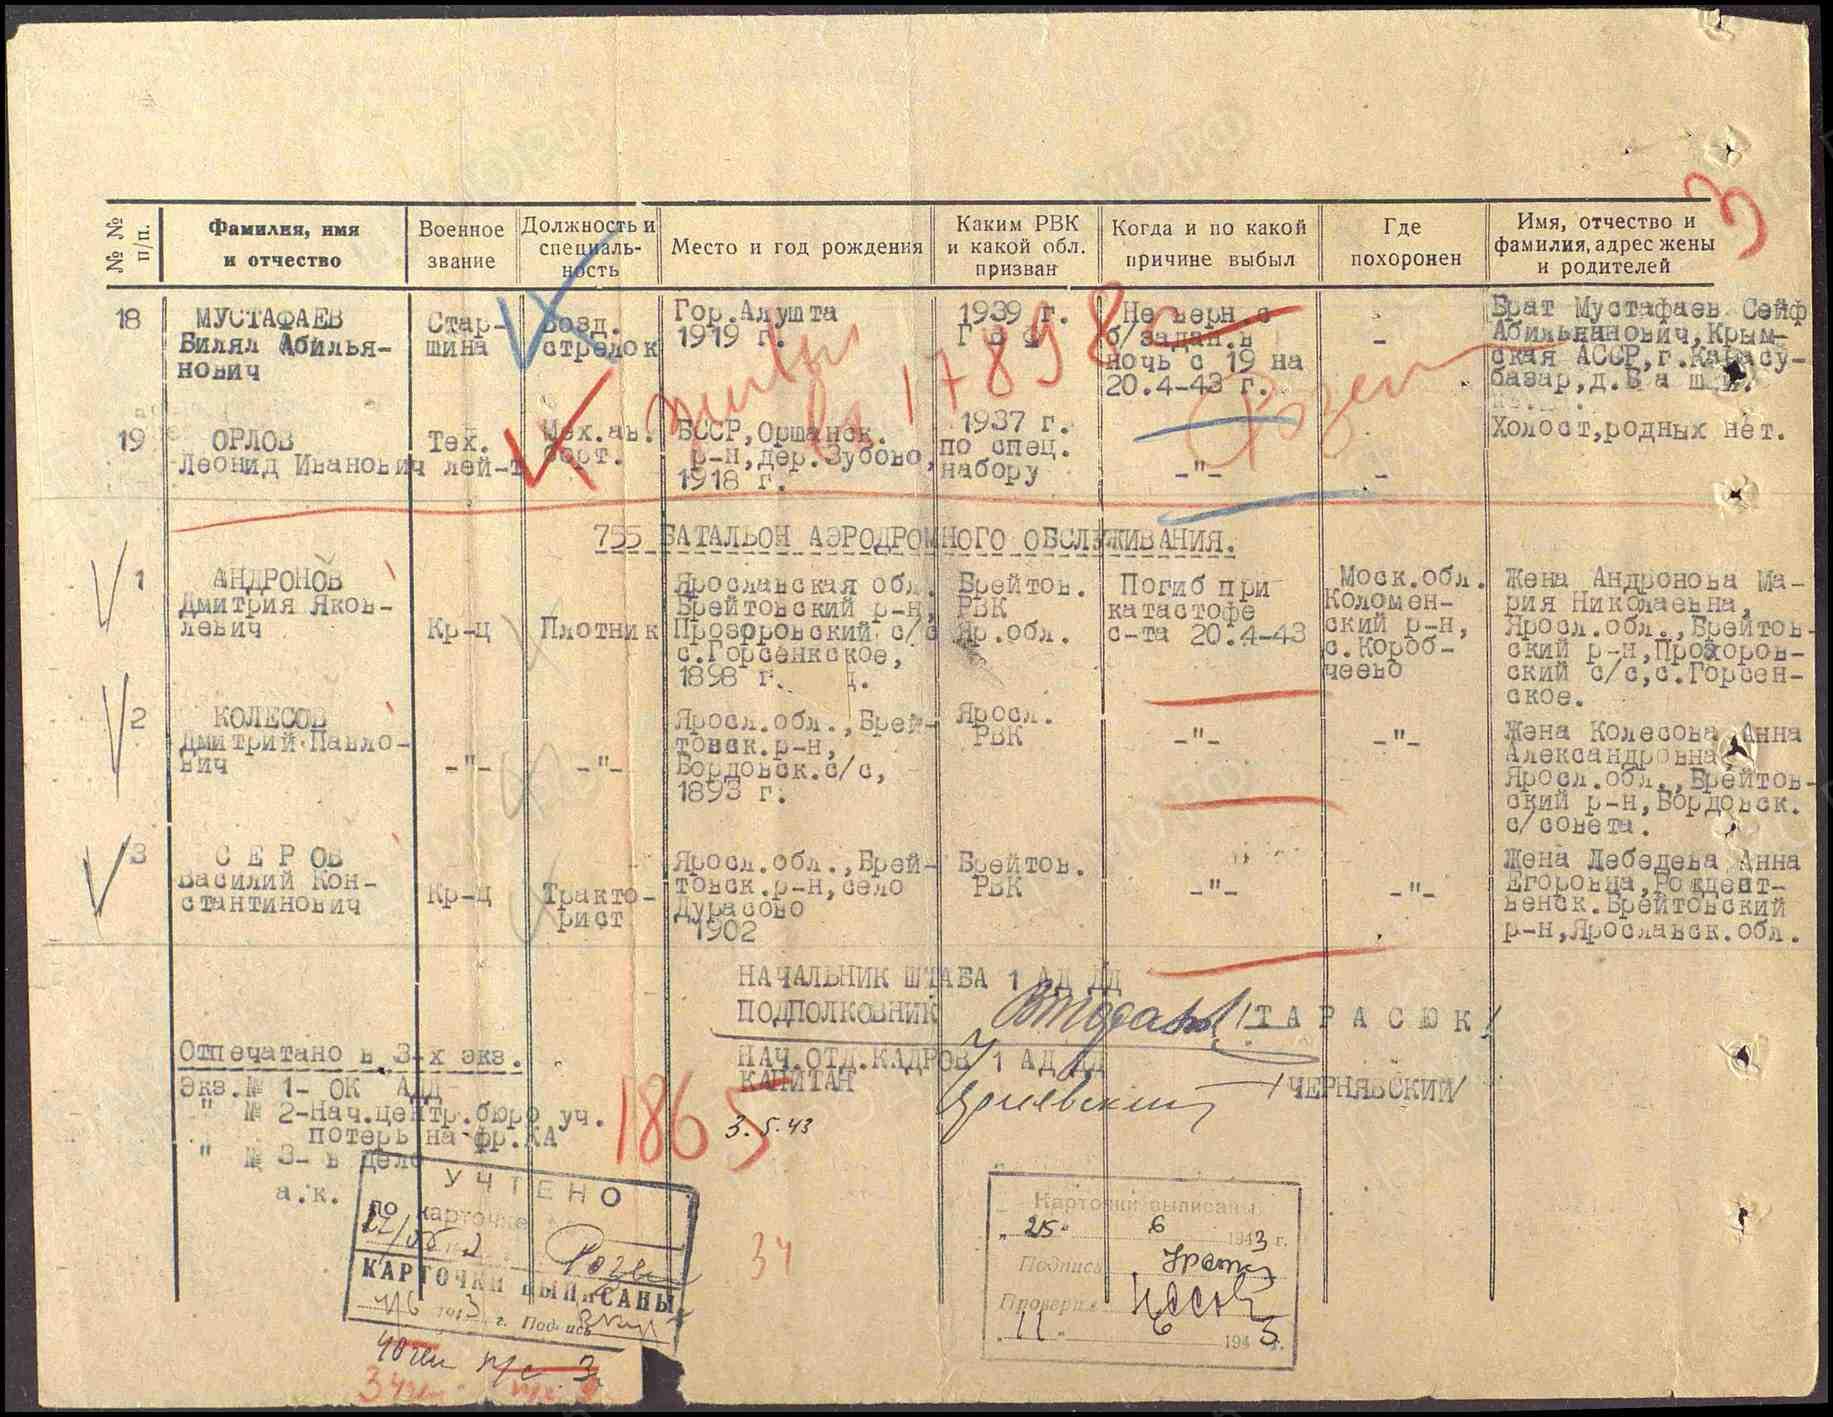 № № п/п.
Фамилия, имя и отчество
Военное звание
Должность и специаль-ность
Место и год рождения
Каким РВК и какой обл. призван
Когда и по какой причине выбыл
Где похоронен
Имя, отчество и фамилия, адрес жены и родителей
3
18
МУСТАФАЕВ
Билял Абилья-
нович
Стар-
шина
Возд.
стрелок
Гор.Алушта
1919 г.
1939 г.
Не верн.с
б/задан.в
ночь с 19 на
20.4-43 г.
-
Брат Мустафаев Сейф
Абильянанович,Крым-
ская АССР,г.Карасу-
базар,д.
живы
17898
19
ОРЛОВ
Леонид Иванович
Тех.
лей-т
Мех.ав.
борт.
БССР,Оршанск.
р-н,дер.Зубово,
1918 г.
1937 г.
по спец.
набору
-"-
-
Холост,родных нет.
755 БАТАЛЬОН АЭРОДРОМНОГО ОБСЛУЖИВАНИЯ.
1
АНДРОНОВ
Дмитрия Яков-
левич
Кр-ц
Плотник
Ярославская обл.
Брейтовский р-н,
Прозоровский с/с
с.Горсенкское,
1898 г.
Брейтов.
РВК
Яр.обл.
Погиб при
катастофе
с-та 20.4-43
Моск.обл.
Коломен-
ский р-н,
с.Короб-
чеево
Жена Андронова Ма-
рия Николаевна,
Яросл.обл.,Брейтов-
ский р-н,Прозоров-
ский с/с,с.Горсен-
ское.
2
КОЛЕСОВ
Дмитрий Павло-
вич
-"-
-"-
Яросл.обл.,Брей-
товск.р-н,
Бордовск.с/с,
1893 г.
Яросл.
РВК
-"-
-"-
Жена Колесова Анна
Александровна,
Яросл.обл.,Брейтов-
ский р-н,Бордовск.
с/совета.
3
СЕРОВ
Василий Кон-
стантинович
Кр-ц
Тракто-
рист
Яросл.обл.,Брей-
товск.р-н,село
Дурасово
1902
Брейтов.
РВК
-"-
-"-
Жена Лебедева Анна
Егоровна,Рождест-
венск.Брейтовский
р-н,Ярославск.обл.
НАЧАЛЬНИК ШТАБА 1 АД ДД
ПОДПОЛКОВНИК
/ТАРАСЮК/
НАЧ.ОТД.КАДРОВ 1 АД ДД
КАПИТАН
/ЧЕРНЯВСКИЙ/
3.5.43
Отпечатано в 3-х экз.
Экз.№ 1- ОК АДД
" № 2-Нач.центр.бюро уч.
потерь на фр.КА
" № 3- в дело
а.к.
1865
УЧТЕНО
по карточке
КАРТОЧКИ ВЫПИСАНЫ
1943 г. Подпись
34
Карточки выписаны
"25" 6 1943 г.
Подпись
Проверил
"11" 6 1943 г.